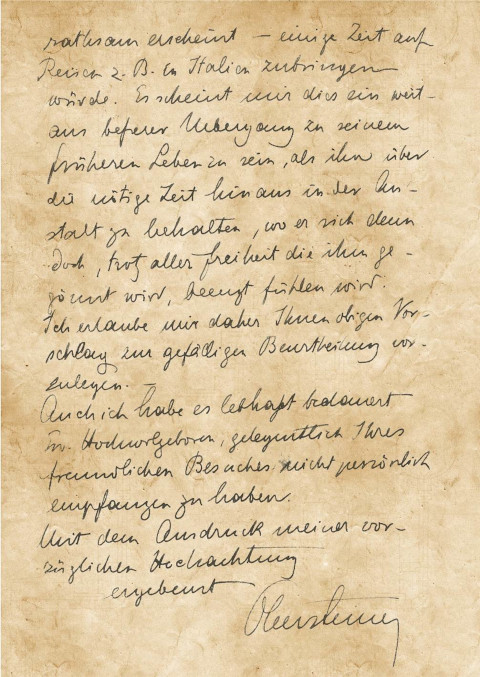 rathsam erscheint – einige Zeit auf
Reisen z. B. in Italien zubringen
würde. Es scheint mir dies ein weit-
aus besserer Uebergang zu seinem
früheren Leben zu sein, als ihn über
die nötige Zeit hinaus in der An-
stalt zu behalten, wo er sich denn
doch, trotz aller Freiheit die ihm ge-
gönnt wird, beengt fühlen wird.
Ich erlaube mir daher Ihnen obigen Vor-
schlag zur gefälligen Beurtheilung vor-
zulegen. –
Auch ich habe es lebhaft bedauert
Ew. Hochwolgeboren, gelegentlich Ihres
freundlichen Besuches nicht persönlich
empfangen zu haben.
Mit dem Ausdruck meiner vor-
züglichen Hochachtung
ergebenst
Obersteiner